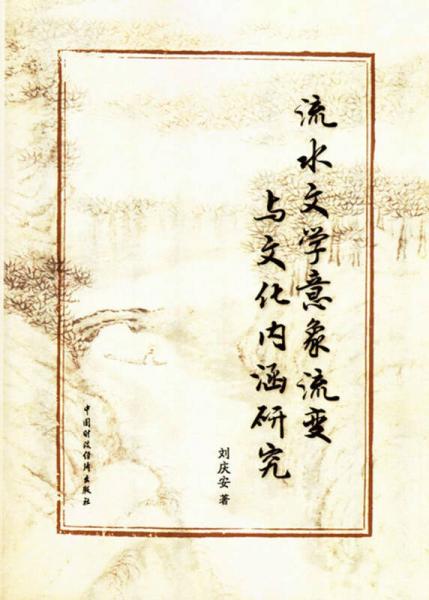 流水文学意象流变
与文化内涵研究
刘庆安 著
中国财政经济出版社